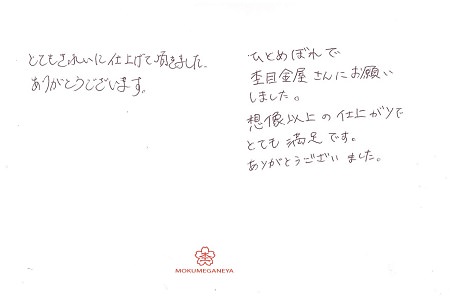 とてもきれいに仕上げて頂きました。
ありがとうございます。
ひとめぼれで
杢目金屋さんにお願い
しました。
想像以上の仕上がりで
とても満足です。
ありがとうございました。
MOKUMEGANEYA